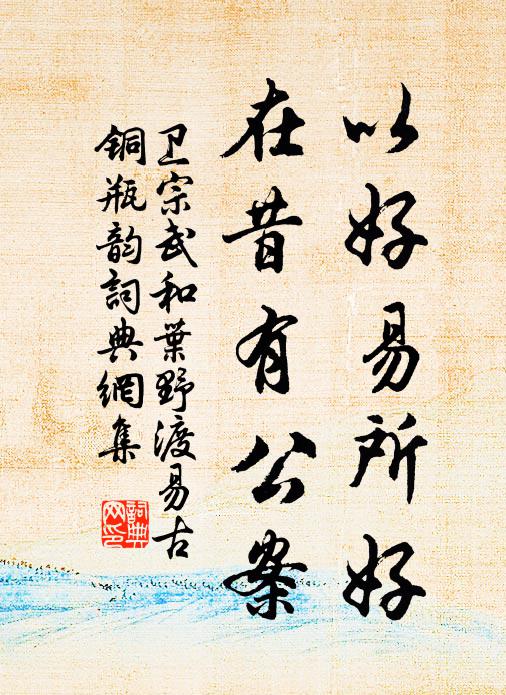 以好易所好
在昔有公案
卫宗武和葉野渡易古
铜瓶韵詞典網集
詞典網印